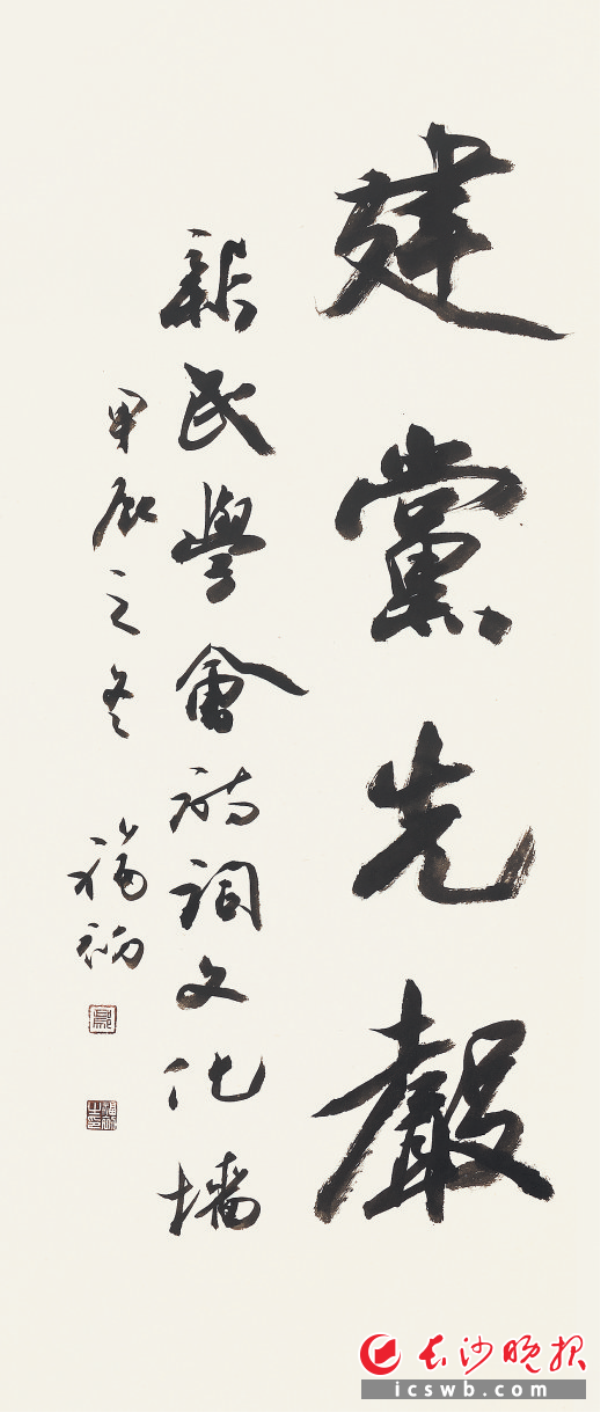 建黨先聲
新民學會詩詞文化墻
甲辰之冬
福炳
长沙晚报
icswb.com